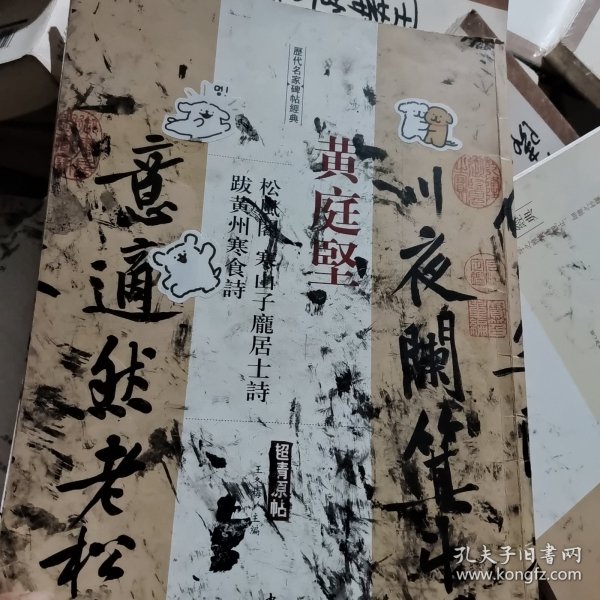 歷代名家碑帖經典
黃庭堅
松風閣 寒山子龐居士詩
跋黃州寒食詩
超清原帖
川夜闌箕斗
意適然老松
孔夫子旧书网
www.kongfz.com